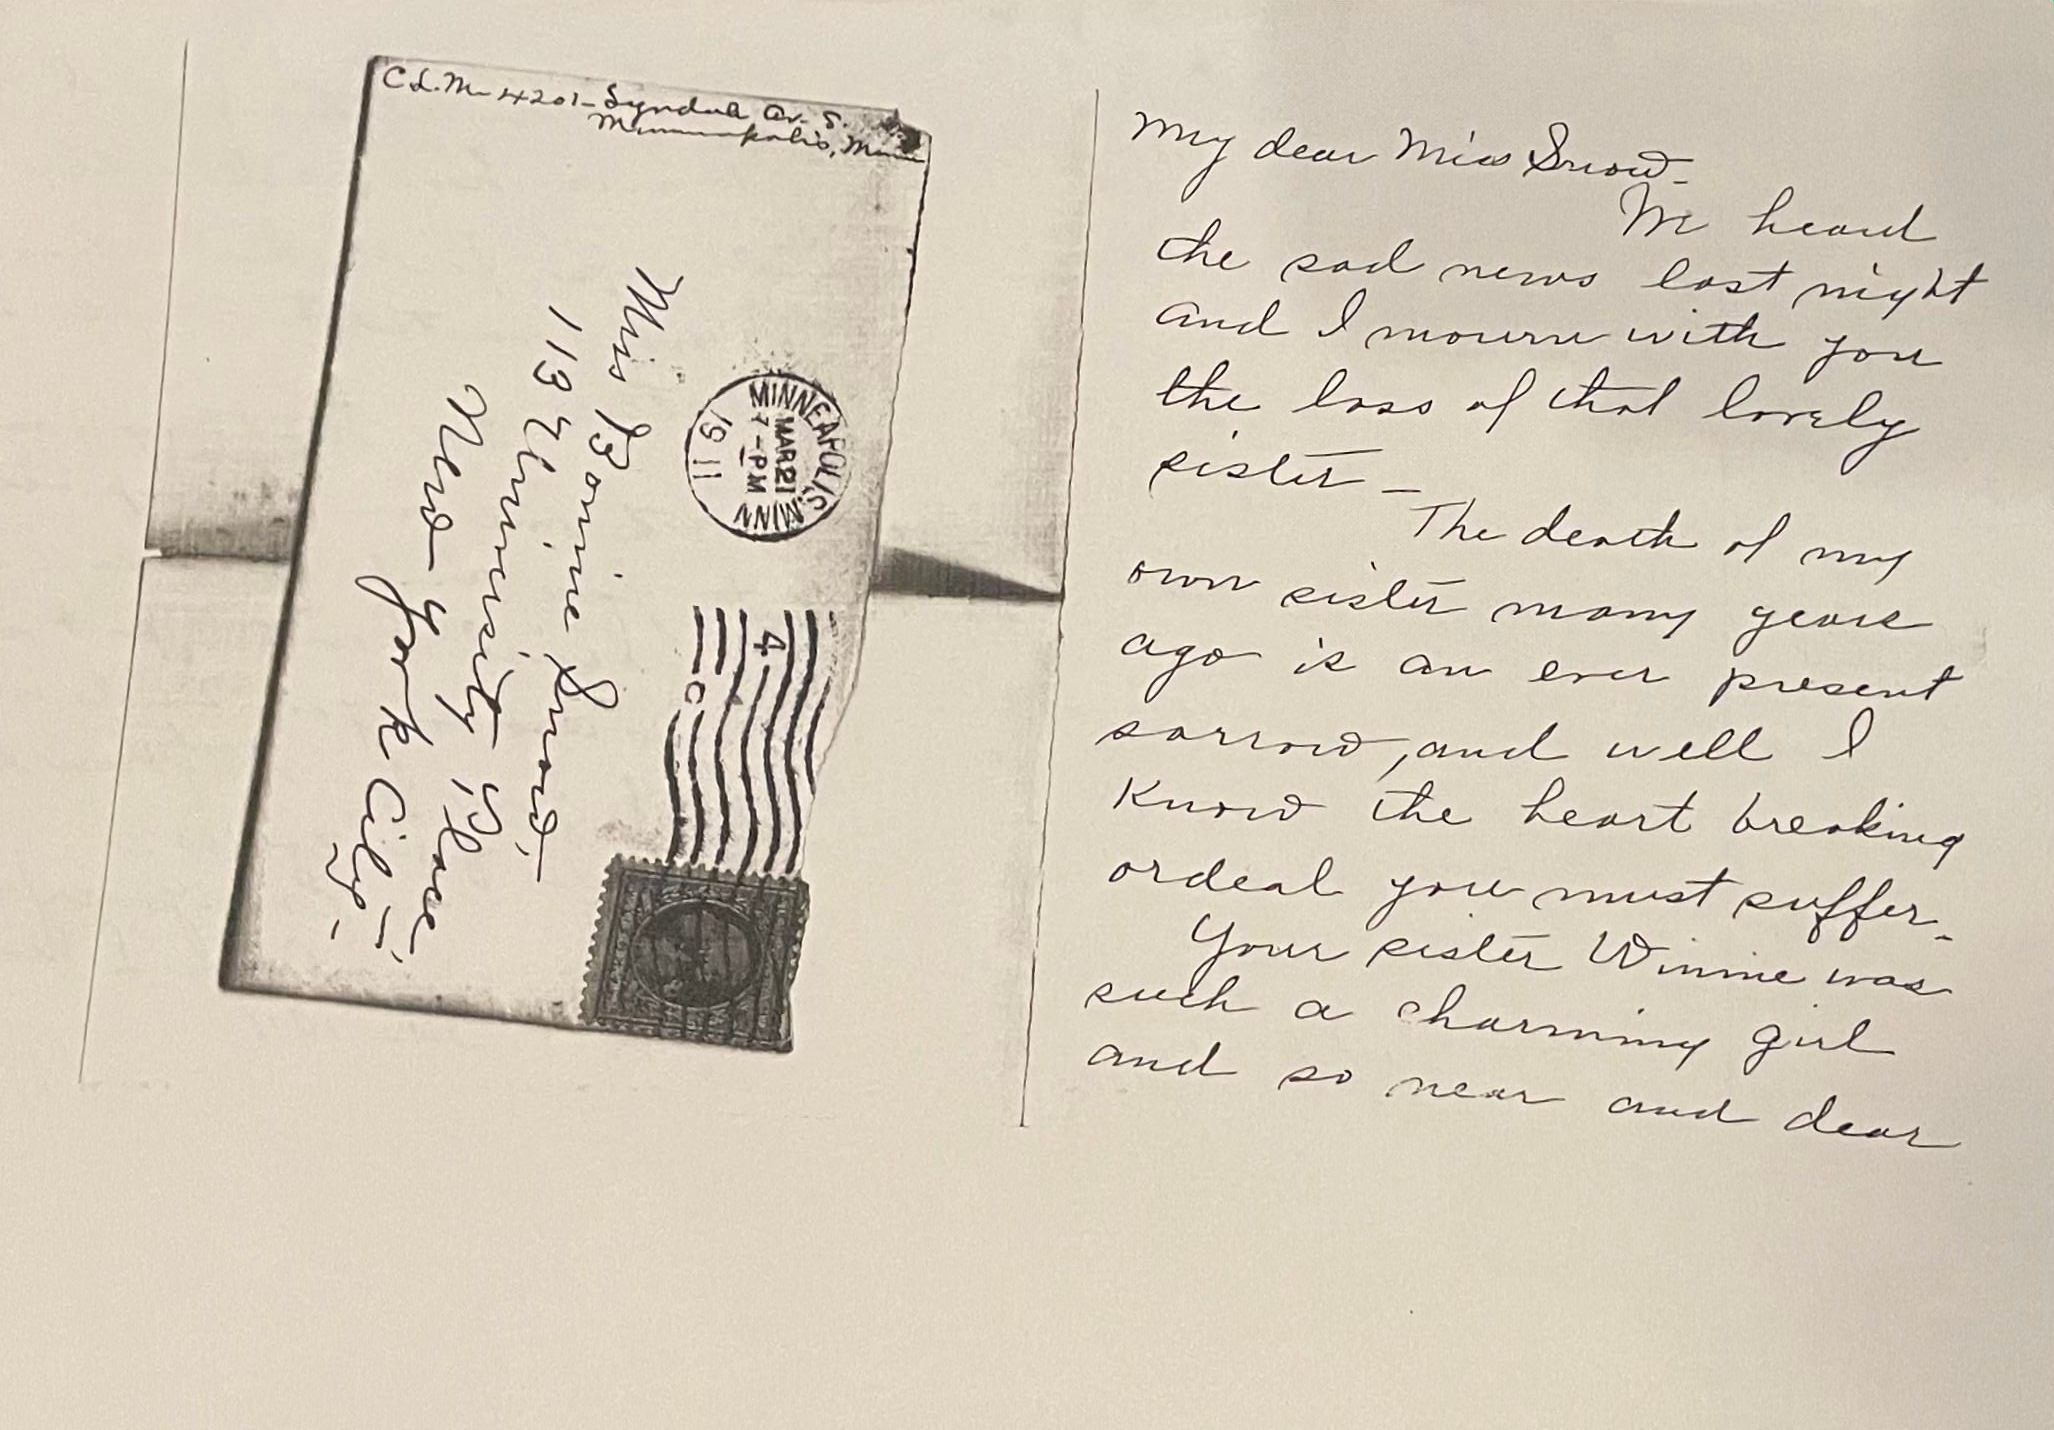 C.L.M- 4201- Lyndale Av. S.
Minneapolis, Minn
MINNEAPOLIS, MINN
MAR 21
7-PM
1911
4
C
Miss Bonnie Snow,
113 University Place,
New York City-
My dear Miss Snow-
We heard
the sad news last night
and I mourn with you
the loss of that lovely
sister -
The death of my
own sister many years
ago is an ever present
sorrow, and well I
know the heart breaking
ordeal you must suffer.
Your sister Winnie was
such a charming girl
and so near and dear